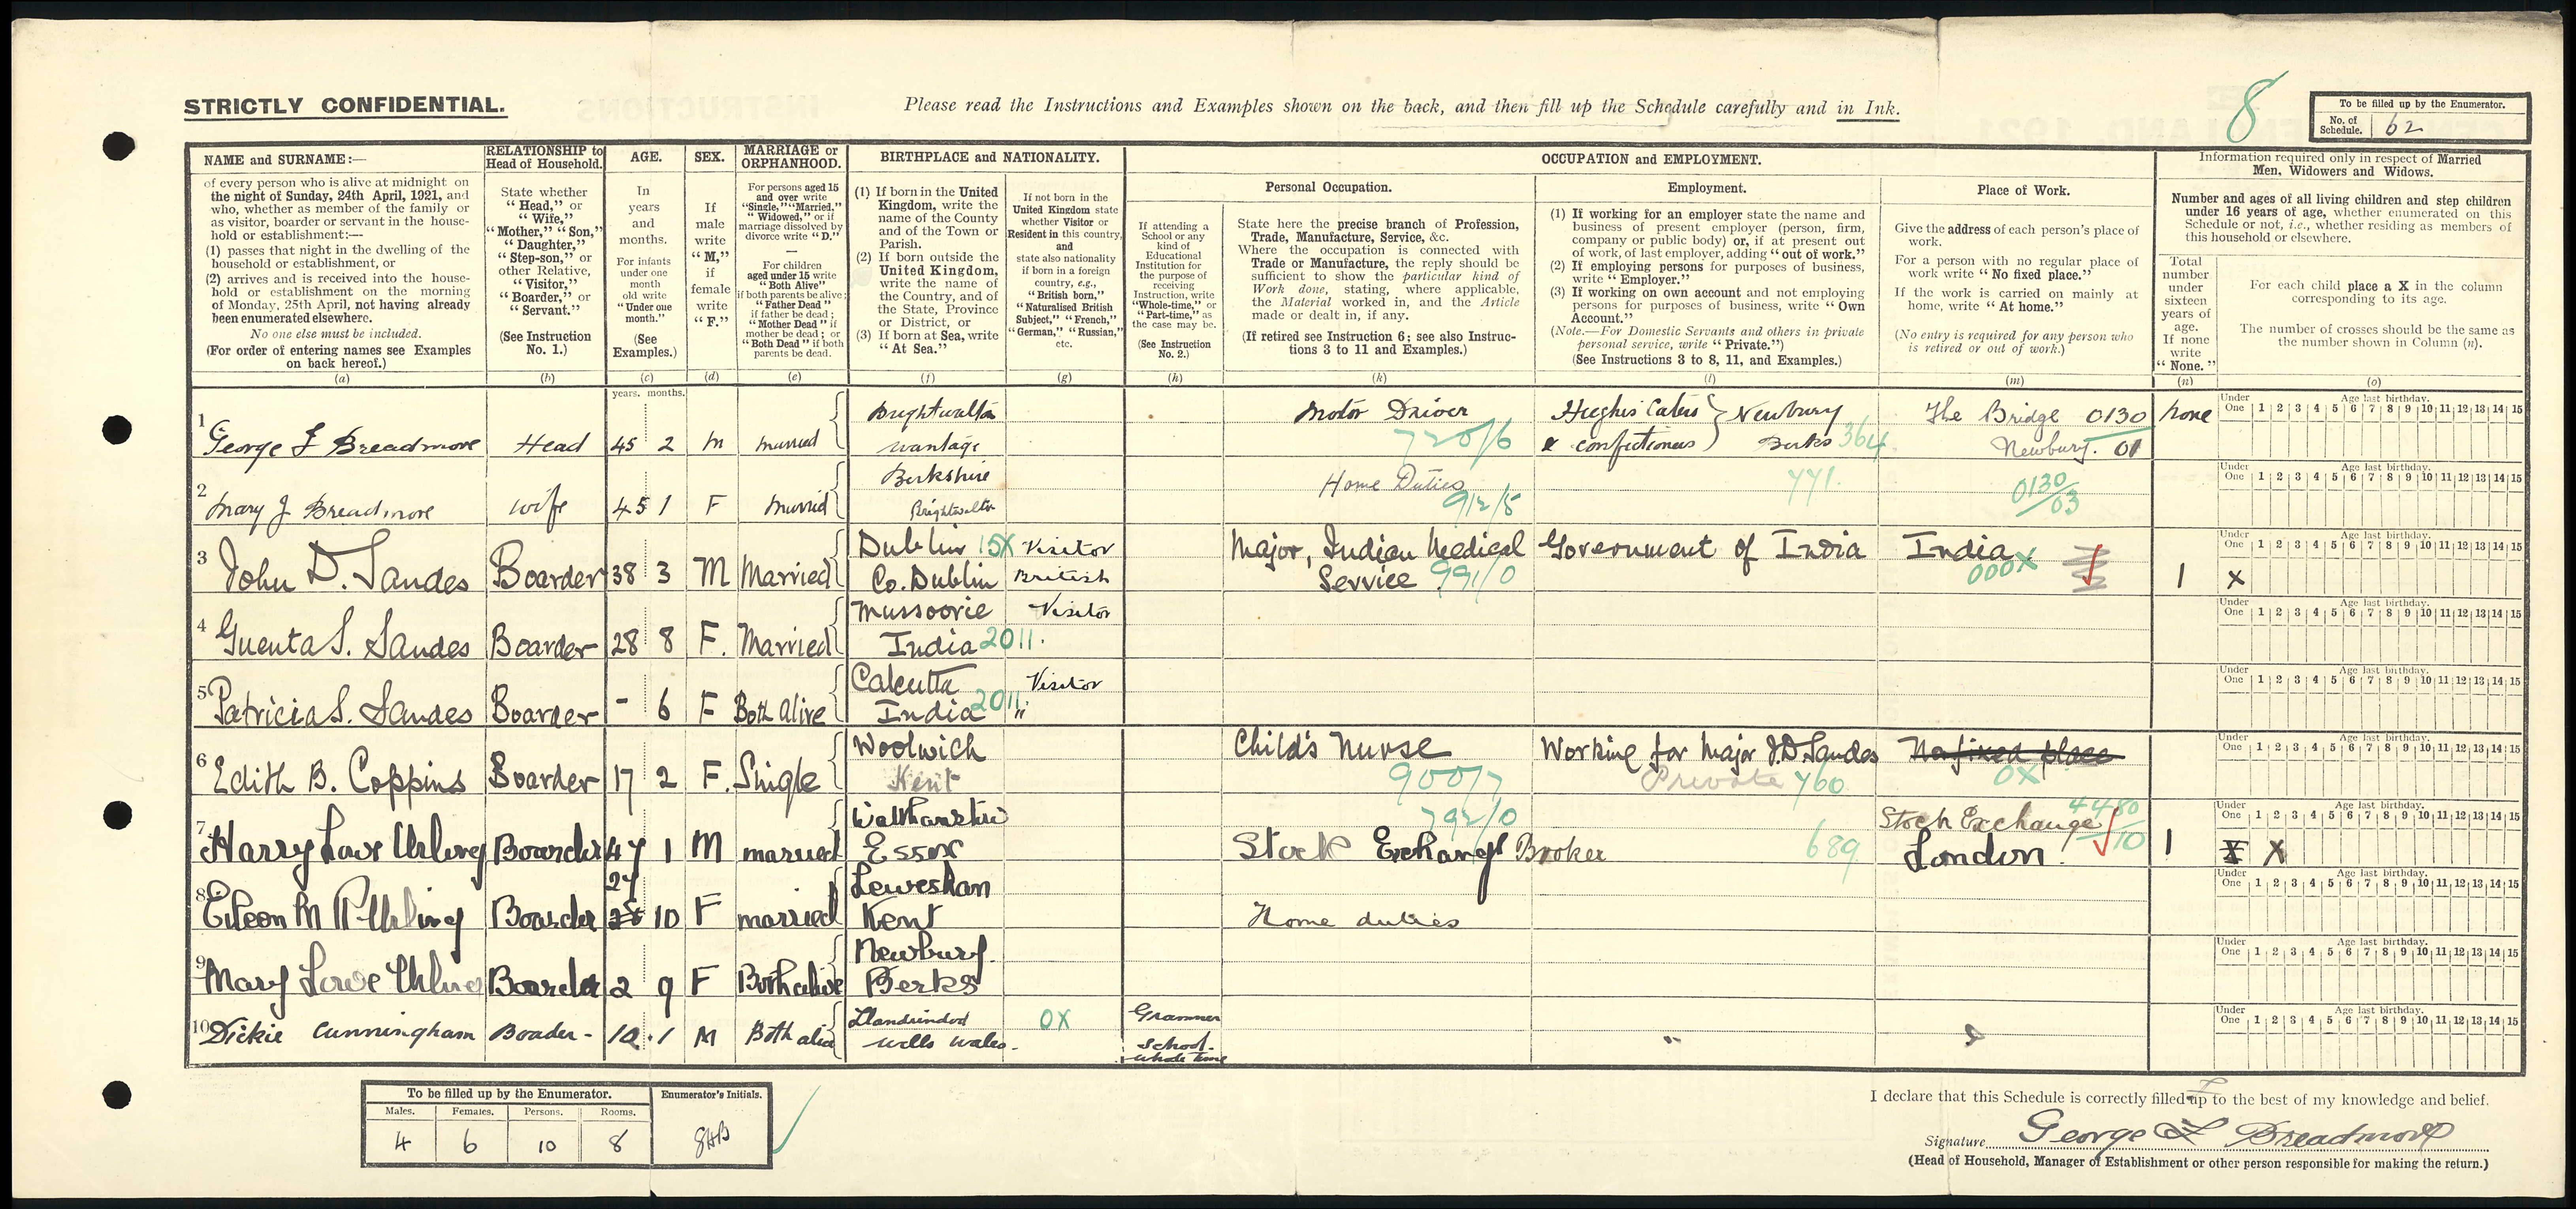 STRICTLY CONFIDENTIAL.
Please read the Instructions and Examples shown on the back, and then fill up the Schedule carefully and in Ink.
8
To be filled up by the Enumerator.
No. of Schedule. 62
NAME and SURNAME:—
of every person who is alive at midnight on
the night of Sunday, 24th April, 1921, and
who, whether as member of the family or
as visitor, boarder or servant in the house-
hold or establishment:—
(1) passes that night in the dwelling of the
household or establishment, or
(2) arrives and is received into the house-
hold or establishment on the morning
of Monday, 25th April, not having already
been enumerated elsewhere.
No one else must be included.
(For order of entering names see Examples
on back hereof.)
(a)
RELATIONSHIP to
Head of Household.
State whether
"Head," or
"Wife,"
"Mother," "Son,"
"Daughter,"
"Step-son," or
other Relative,
"Visitor,"
"Boarder," or
"Servant."
(See Instruction
No. 1.)
(b)
AGE.
In
years
and
months.
For infants
under one
month
old write
"Under one
month."
(See
Examples.)
(c)
SEX.
If
male
write
"M,"
if
female
write
"F."
(d)
MARRIAGE or
ORPHANHOOD.
For persons aged 15
and over write
"Single," "Married,"
"Widowed," or if
marriage dissolved by
divorce write "D."
—
For children
aged under 15 write
"Both Alive"
if both parents be alive;
"Father Dead"
if father be dead;
"Mother Dead" if
mother be dead; or
"Both Dead" if both
parents be dead.
(e)
BIRTHPLACE and NATIONALITY.
(1) If born in the United
Kingdom, write the
name of the County
and of the Town or
Parish.
(2) If born outside the
United Kingdom,
write the name of
the Country, and of
the State, Province
or District, or
(3) If born at Sea, write
"At Sea."
(f)
If not born in the
United Kingdom state
whether Visitor or
Resident in this country,
and
state also nationality
if born in a foreign
country, e.g.,
"British born,"
"Naturalised British
Subject," "French,"
"German," "Russian,"
etc.
(g)
OCCUPATION and EMPLOYMENT.
If attending a
School or any
kind of
Educational
Institution for
the purpose of
receiving
Instruction, write
"Whole-time," or
"Part-time," as
the case may be.
(See Instruction
No. 2.)
(h)
Personal Occupation.
State here the precise branch of Profession,
Trade, Manufacture, Service, &c.
Where the occupation is connected with
Trade or Manufacture, the reply should be
sufficient to show the particular kind of
Work done, stating, where applicable,
the Material worked in, and the Article
made or dealt in, if any.
(If retired see Instruction 6; see also Instruc-
tions 3 to 11 and Examples.)
(k)
Employment.
(1) If working for an employer state the name and
business of present employer (person, firm,
company or public body) or, if at present out
of work, of last employer, adding "out of work."
(2) If employing persons for purposes of business,
write "Employer."
(3) If working on own account and not employing
persons for purposes of business, write "Own
Account."
(Note.—For Domestic Servants and others in private
personal service, write "Private.")
(See Instructions 3 to 8, 11, and Examples.)
(l)
Place of Work.
Give the address of each person's place of
work.
For a person with no regular place of
work write "No fixed place."
If the work is carried on mainly at
home, write "At home."
(No entry is required for any person who
is retired or out of work.)
(m)
Information required only in respect of Married
Men, Widowers and Widows.
Number and ages of all living children and step children
under 16 years of age, whether enumerated on this
Schedule or not, i.e., whether residing as members of
this household or elsewhere.
Total
number
under
sixteen
years of
age.
If none
write
"None."
(n)
For each child place a X in the column
corresponding to its age.
The number of crosses should be the same as
the number shown in Column (n).
(o)
years. months.
Under One Age last birthday. 1 2 3 4 5 6 7 8 9 10 11 12 13 14 15
1 George F Breadmore Head 45 2 M Married Brightwalton Wantage Motor Driver 720/6 Caters & confectioners Newbury Berks 364 The Bridge Newbury. 0130 01 None
Under One Age last birthday. 1 2 3 4 5 6 7 8 9 10 11 12 13 14 15
2 Mary J Breadmore Wife 45 1 F Married Berkshire Brightwalton Home Duties 912/5 771. 0130/03
Under One Age last birthday. 1 2 3 4 5 6 7 8 9 10 11 12 13 14 15
3 John D. Sandes Boarder 38 3 M Married Dublin 15X Co. Dublin Visitor British Major, Indian Medical Service 991/0 Government of India India 000X 1 X
Under One Age last birthday. 1 2 3 4 5 6 7 8 9 10 11 12 13 14 15
4 Guenta S. Sandes Boarder 28 8 F. Married Mussoorie India 2011. Visitor
Under One Age last birthday. 1 2 3 4 5 6 7 8 9 10 11 12 13 14 15
5 Patricia S. Sandes Boarder - 6 F Both Alive Calcutta India 2011 Visitor "
Under One Age last birthday. 1 2 3 4 5 6 7 8 9 10 11 12 13 14 15
6 Edith B. Coppins Boarder 17 2 F. Single Woolwich Kent Child's Nurse 900/7 Working for Major J.D. Sandes Private 760 No fixed place 0X
Under One Age last birthday. 1 2 3 4 5 6 7 8 9 10 11 12 13 14 15
7 Harry Lowe Urling Boarder 47 1 M married Walthamstow Essex 792/0 Stock Exchange Broker 689 Stock Exchange London. 4480 10 1 X X
Under One Age last birthday. 1 2 3 4 5 6 7 8 9 10 11 12 13 14 15
8 Eileen M Urling Boarder 27 10 F married Lewesham Kent Home duties
Under One Age last birthday. 1 2 3 4 5 6 7 8 9 10 11 12 13 14 15
9 Mary Lowe Urling Boarder 2 9 F Both alive Newbury. Berks
Under One Age last birthday. 1 2 3 4 5 6 7 8 9 10 11 12 13 14 15
10 Dickie Cunningham Boader - 10.1 M Both alia Llandrindod wells wales - 0X Grammer School. Whole time
To be filled up by the Enumerator.
Males. Females. Persons. Rooms.
4 6 10 8
Enumerator's Initials.
I declare that this Schedule is correctly filled up to the best of my knowledge and belief.
Signature George F Breadmore
(Head of Household, Manager of Establishment or other person responsible for making the return.)